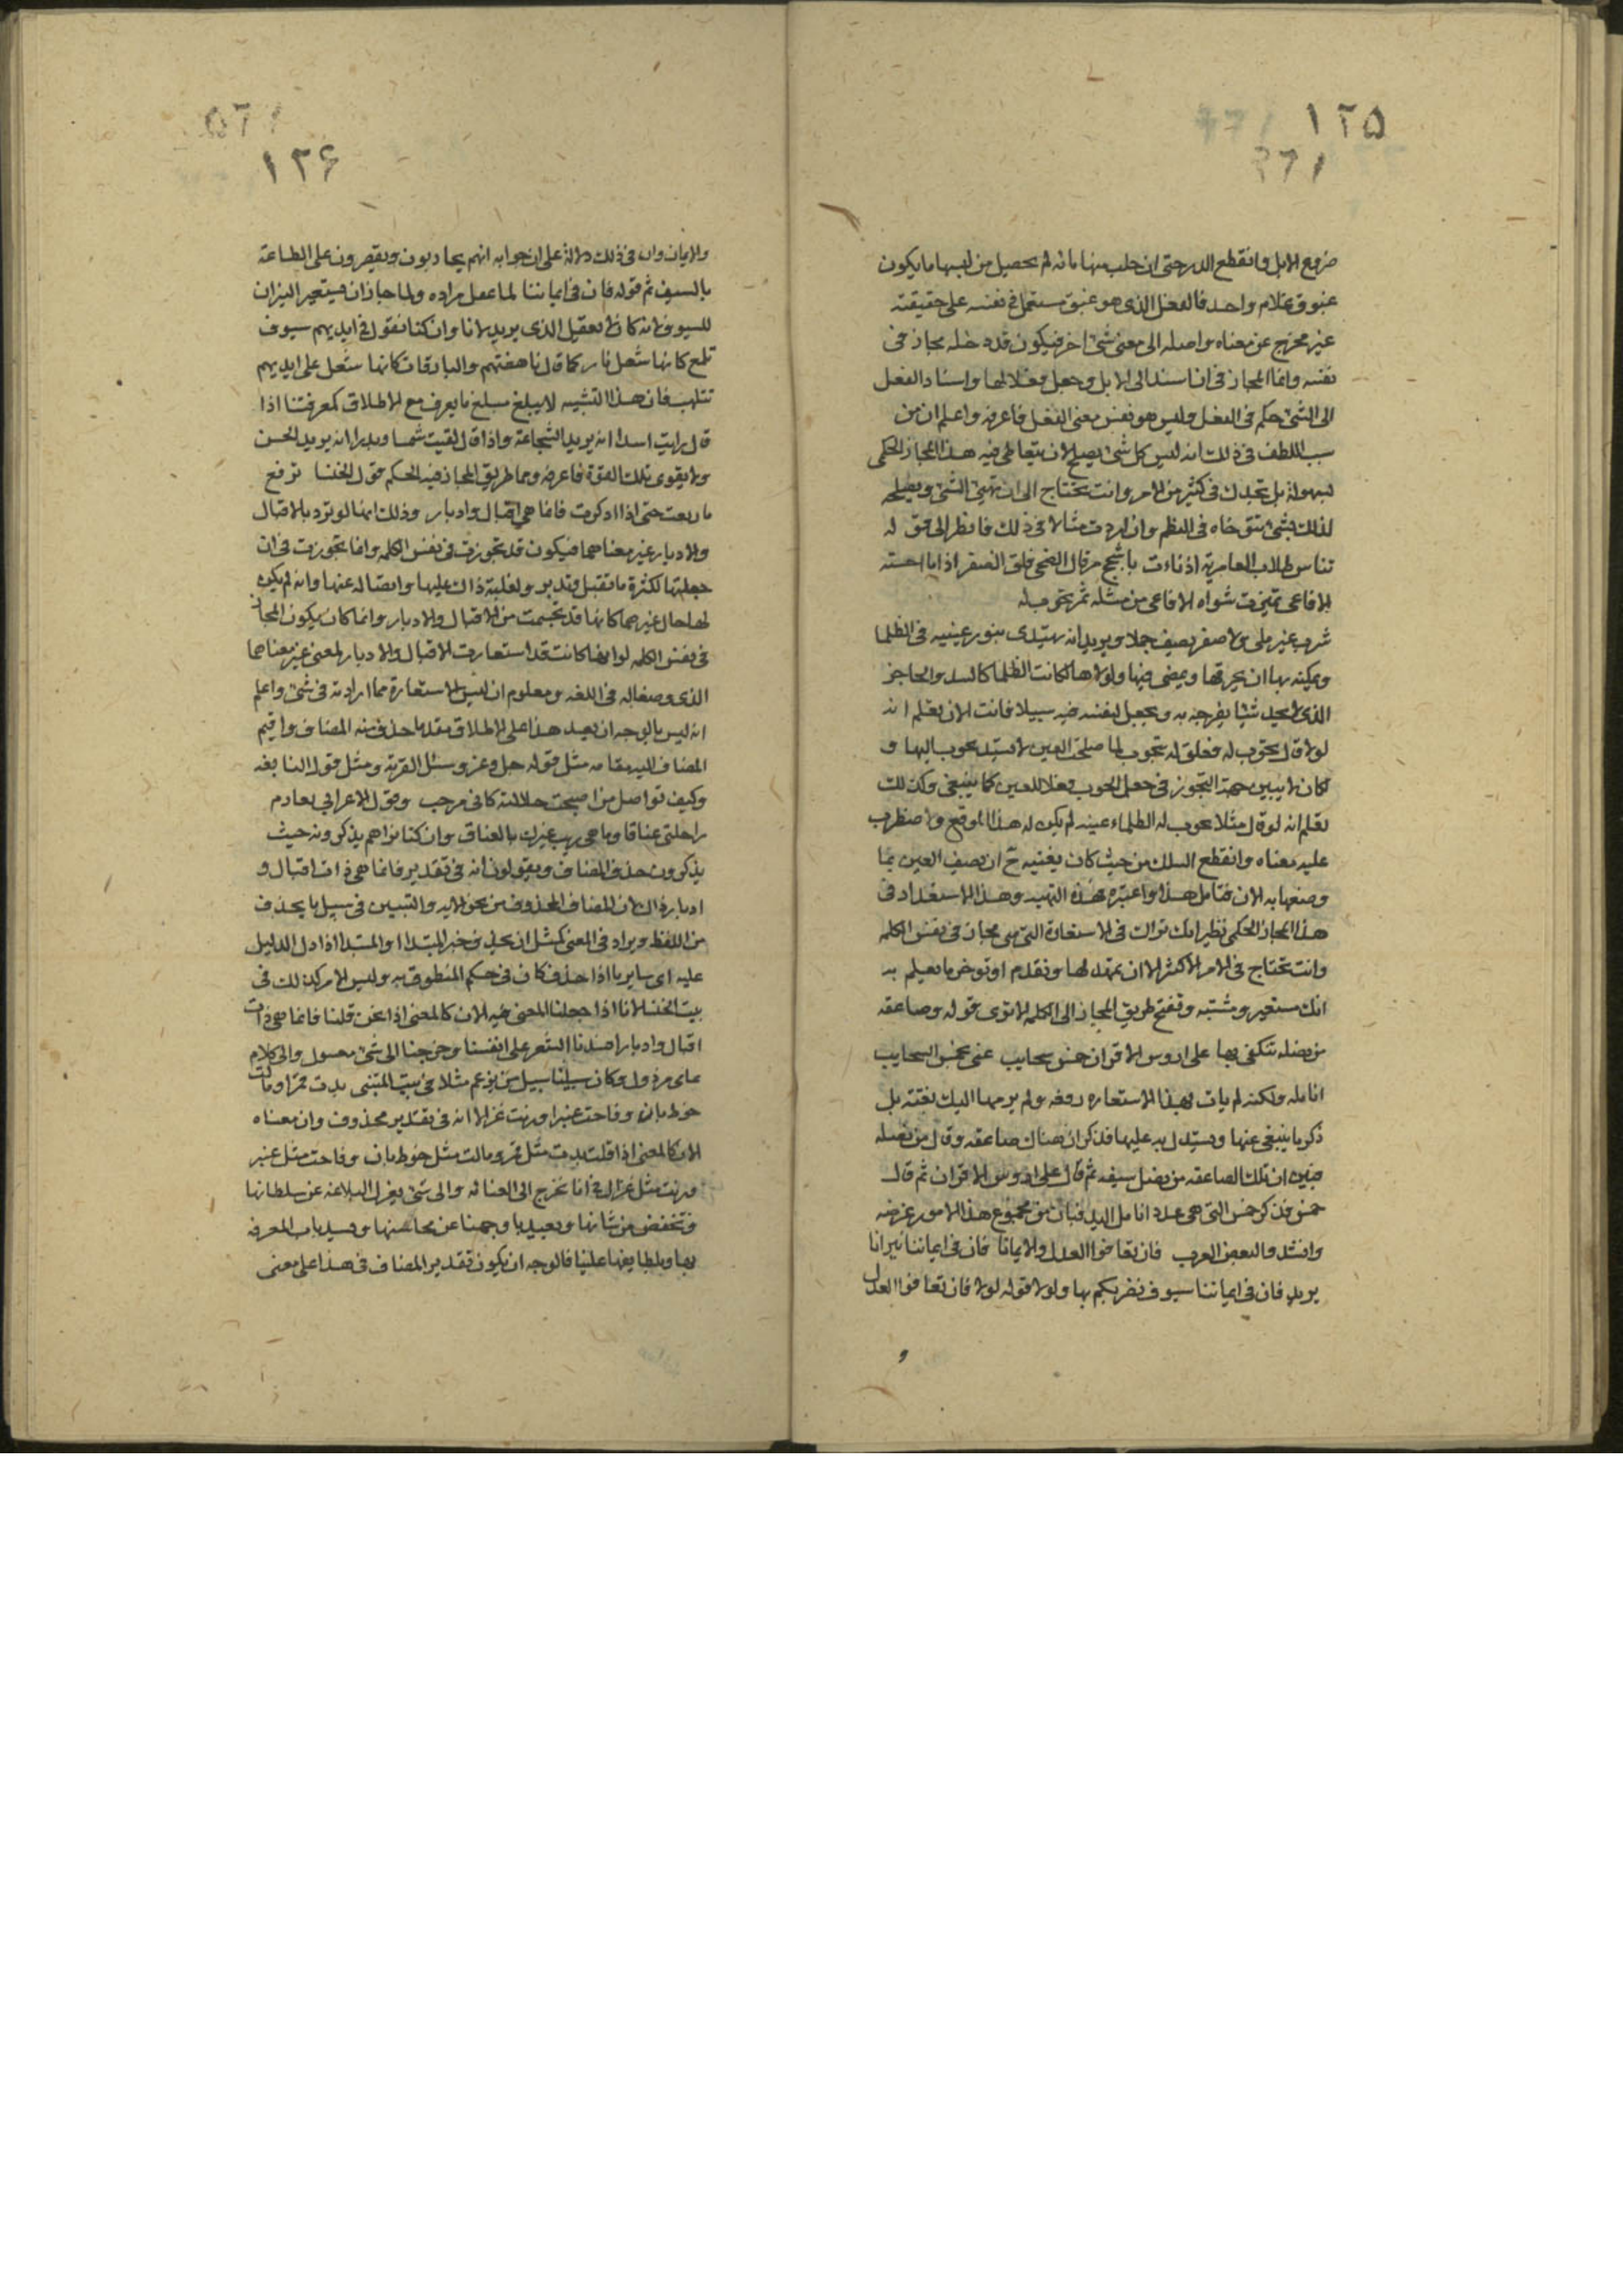 ١٢٥
ضروع الابل وانقطع الدر حتى ان حلب منها مائة لم يحصل من لبنها ما يكون
غبوق غلام واحد فالفعل الذى هو غبق مستعمل فى نفسه على حقيقته
غير مخرج عن معناه واصله الى معنى شئ اخر فيكون قد دخله مجاز فى
نفسه وانما المجاز فى ان اسند الى الابل وجعل فعلا لها واسناد الفعل
الى الشئ حكم فى الفعل وليس هو نفس معنى الفعل فاعرفه واعلم ان من
سبب اللطف فى ذلك انه ليس كل شئ يصلح لان يتعاطى فيه هذا المجاز الحكمى
بسهولة بل تجدك فى كثير من الامر وانت تحتاج الى ان تهيئ الشئ وتصلحه
لذلك بشئ تتوخاه فى النظم وان اردت مثالا فى ذلك فانظر الى قوله
تناس طلاب العامرية اذ ناءت باشجح مرقال الضحى قلق الضفر اذا ما احسته
الافاعى تميزت شواه الافاعى من مثلمة سمر تجوب له
شرب غير ملى ولا صفر يصف جملا ويريد انه يهتدى بنور عينيه فى الظلما
ويمكنه بها ان يخرقها ويمضى فيها ولولاها لكانت الظلما كالسد والحاجز
الذى لا يجد شيئا يفرجه به ويجعل لنفسه فيه سبيلا فانت الان تعلم انه
لولا قال تجوب له فعلق له بتجوب لما صلحت العين لان يسند تجوب اليها و
لكان لا يتبين جهة التجوز فى جعل الجوب فعلا للعين كما ينبغى وكذلك
تعلم انه لو قال مثلا تجوب له الظلماء عينه لم يكن له هذا الموقع ولاضطرب
عليه معناه وانقطع السلك من حيث كان يعنيه ح ان يصف العين بما
وصفها به الان فتامل هذا واعتبره فهذه التهيه وهذا الاستعداد فى
هذا المجاز الحكمى نظير انك تراك فى الاستعارة التى هى مجاز فى نفس الكلمه
وانت تحتاج فى الامر الاكثر الا ان تمهد لها وتقدم او تؤخر ما يعلم به
انك مستعير ومشبه وتفتح طريق المجاز الى الكلمه الا ترى قوله وصاعقه
من نصله تنكفى بها على اروس الاقران خمس سحايب عنى بخمس السحايب
انامله ولكنه لم يات بهذا الاستعاره دفعه ولم يرمها اليك بغتة بل
ذكر ما ينبئ عنها ويستدل به عليها فذكر ان هناك صاعقه وقال من نصله
فبين ان تلك الصاعقه من نصل سيفه ثم قال على اروس الاقران ثم قال
خمس فذكر خمس التى هى عدد انامل اليد فبان من مجموع هذا الامور غرضه
وانشدوا لبعض العرب فان تعافوا العدل والايمانا فان فى ايماننا نيرانا
يريد فان فى ايماننا سيوف نضربكم بها ولولا قوله لولا فان تعافوا العدل
١٢۶
والايمان وان فى ذلك دلالة على ان جوابه انهم يحاربون ويقصرون على الطاعة
بالسيف ثم قوله فان فى ايماننا لما عقل مراده ولما جاز ان يستعير النيران
للسيوف لانه كان لا يعقل الذى يريد لانا وان كنا نقول فى ايديهم سيوف
تلمع كانها شعل نار كما قال ناهضتهم والبارقات كانها شعل على ايديهم
تتلهب فان هذا التشبيه لا يبلغ مبلغ ما يعرف مع الاطلاق كمعرفتنا اذا
قال رايت اسدا انه يريد الشجاعة واذا قال لقيت شمسا وبدرا انه يريد الحسن
ولا يقوى تلك القوة فاعرفه ومما طريق المجاز فيه الحكم قول الخنسا ترتع
ما رتعت حتى اذا ادكرت فانما هى اقبال وادبار وذلك انها لو ترد بالاقبال
والادبار غير معناهما فيكون قد تجوزت فى نفس الكلمه وانما تجوزت فى ان
جعلتها لكثرة ما تقبل وتدبر ولغلبة ذاك عليها واتصاله عنها وانه لم يكن
لها حال غيرهما كانها قد تجسمت من الاقبال والادبار وانما كان يكون المجاز
فى نفس الكلمه لو انها كانت قد استعارت الاقبال والادبار لمعنى غير معناهما
الذى وضعاله فى اللغه ومعلوم ان ليس الاستعارة مما ارادته فى شئ واعلم
انه ليس بالوجه ان يعد هذا على الاطلاق معد ما حذف منه المضاف واقيم
المضاف اليه مقامه مثل قوله جل وعز وسئل القرية ومثل قول النابغه
وكيف تواصل من اصبحت خلالته كابى مرحب وقول الاعرابى بعادم
راحلتى عناقا وما هى ويب غيرك بالعناق وان كنا نراهم يذكرونه حيث
يذكرون حذف المضاف ويقولون انه فى تقدير فانما هى ذات اقبال و
ادبار ذاك لان المضاف المحذوف من نحو الايه والبيتين فى سبيل ما يحذف
من اللفظ ويراد فى المعنى كمثل ان يحذف خبر المبتدا او المبتدا اذا دل الدليل
عليه اى ساير ما اذا حذف كان فى حكم المنطوق به وليس الامر كذلك فى
بيت الخنسا لانا اذا جعلنا المعنى فيه الان كالمعنى اذا نحن قلنا فانما هى ذات
اقبال وادبار افسدنا الشعر على انفسنا وخرجنا الى شئ مغسول والى كلام
عامى مرذول وكان سبيلنا سبيل من يزعم مثلا فى بيت المتنبى بدت قمرا ومالت
خوط بان وفاحت عنبرا ورنت غزالا انه فى تقدير محذوف وان معناه
الان كالمعنى اذا قلت بدت مثل قمر ومالت مثل خوط بان وفاحت مثل عنبر
ورنت مثل غزال فى انا نخرج الى الغثاثه والى شئ يعزل البلاغه عن سلطانها
وتخفض من شانها وبعيد باوجهنا عن محاسنها ويسد باب المعرفه
بها وبلطايفها علينا فالوجه ان يكون تقدير المضاف فى هذا على معنى